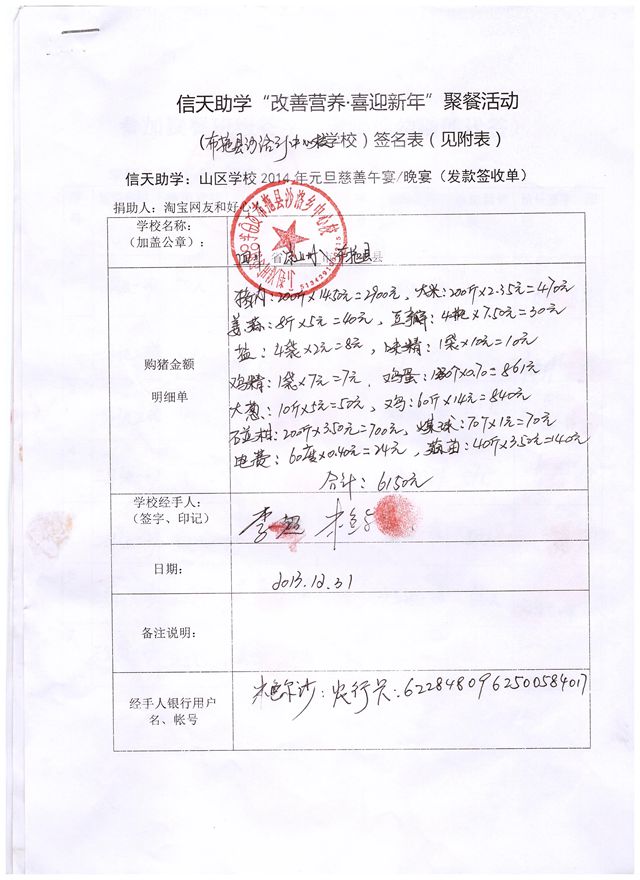 信天助学“改善营养·喜迎新年”聚餐活动
(布拖县沙洛乡中心校学校)签名表(见附表)
信天助学：山区学校2014年元旦慈善午宴/晚宴（发款签收单）
捐助人：淘宝网友和好心
学校名称：
（加盖公章）：
四川省凉山州布拖县
购猪金额
明细单
猪肉：200斤×14.50元=2900元，大米：200斤×2.35元=470元
姜蒜：8斤×5元=40元，豆瓣：4瓶×7.50元=30元
盐：4袋×2元=8元，味精：1袋×10元=10元
鸡精：1袋×7元=7元，鸡蛋：×0.70=861元
大葱：10斤×5元=50元，鸡：60斤×14元=840元
200斤×3.50元=700元，煤球：70个×1元=70元
电费：60度×0.40元=24元，蒜苗：40斤×3.50元=140元
合计：6150元
学校经手人：
（签字、印记）
李
日期：
2013.12.31
备注说明：
经手人银行用户
名、帐号
木色尔沙：农行卡：6228480962500584017